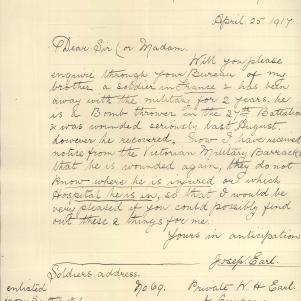 April 25 1917.
Dear Sir (or Madam.
Will you please
enquire through your Bureau of my
brother a soldier in France & has been
away with the military for 2 years, he
is a Bomb thrower in the 27th Battalion
& was wounded seriously last August.
however he recovered. Now I have received
notice from the Victorian Military Barracks
that he is wounded again, they do not
know where he is injured or which
Hospital he is in, so that I would be
very pleased if you could possibly find
out these 2 things for me.
Yours in anticipation
Josep Earl.
Soldiers address.
enlisted No 69. Private W. H Earl